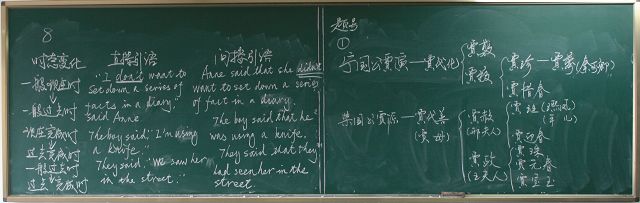 8
时态变化
一般现在时
一般过去时
现在完成时
过去完成时
一般过去时
过去完成时
直接引语
"I don't want to
set down a series of
facts in a diary."
said Anne
The boy said: "I'm using
a knife."
They said: "We saw her
in the street."
间接引语
Anne said that she didn't
want to set down a series
of fact in a diary.
The boy said that he
was using a knife.
They said that they
had seen her in the
street.
①
宁国公贾演—贾代化
贾敷
贾敬
贾珍—贾蓉
贾惜春
荣国公贾源—贾代善
(贾母)
贾赦
(邢夫人)
贾政
(王夫人)
贾琏
贾迎春
贾珠
贾元春
贾宝玉